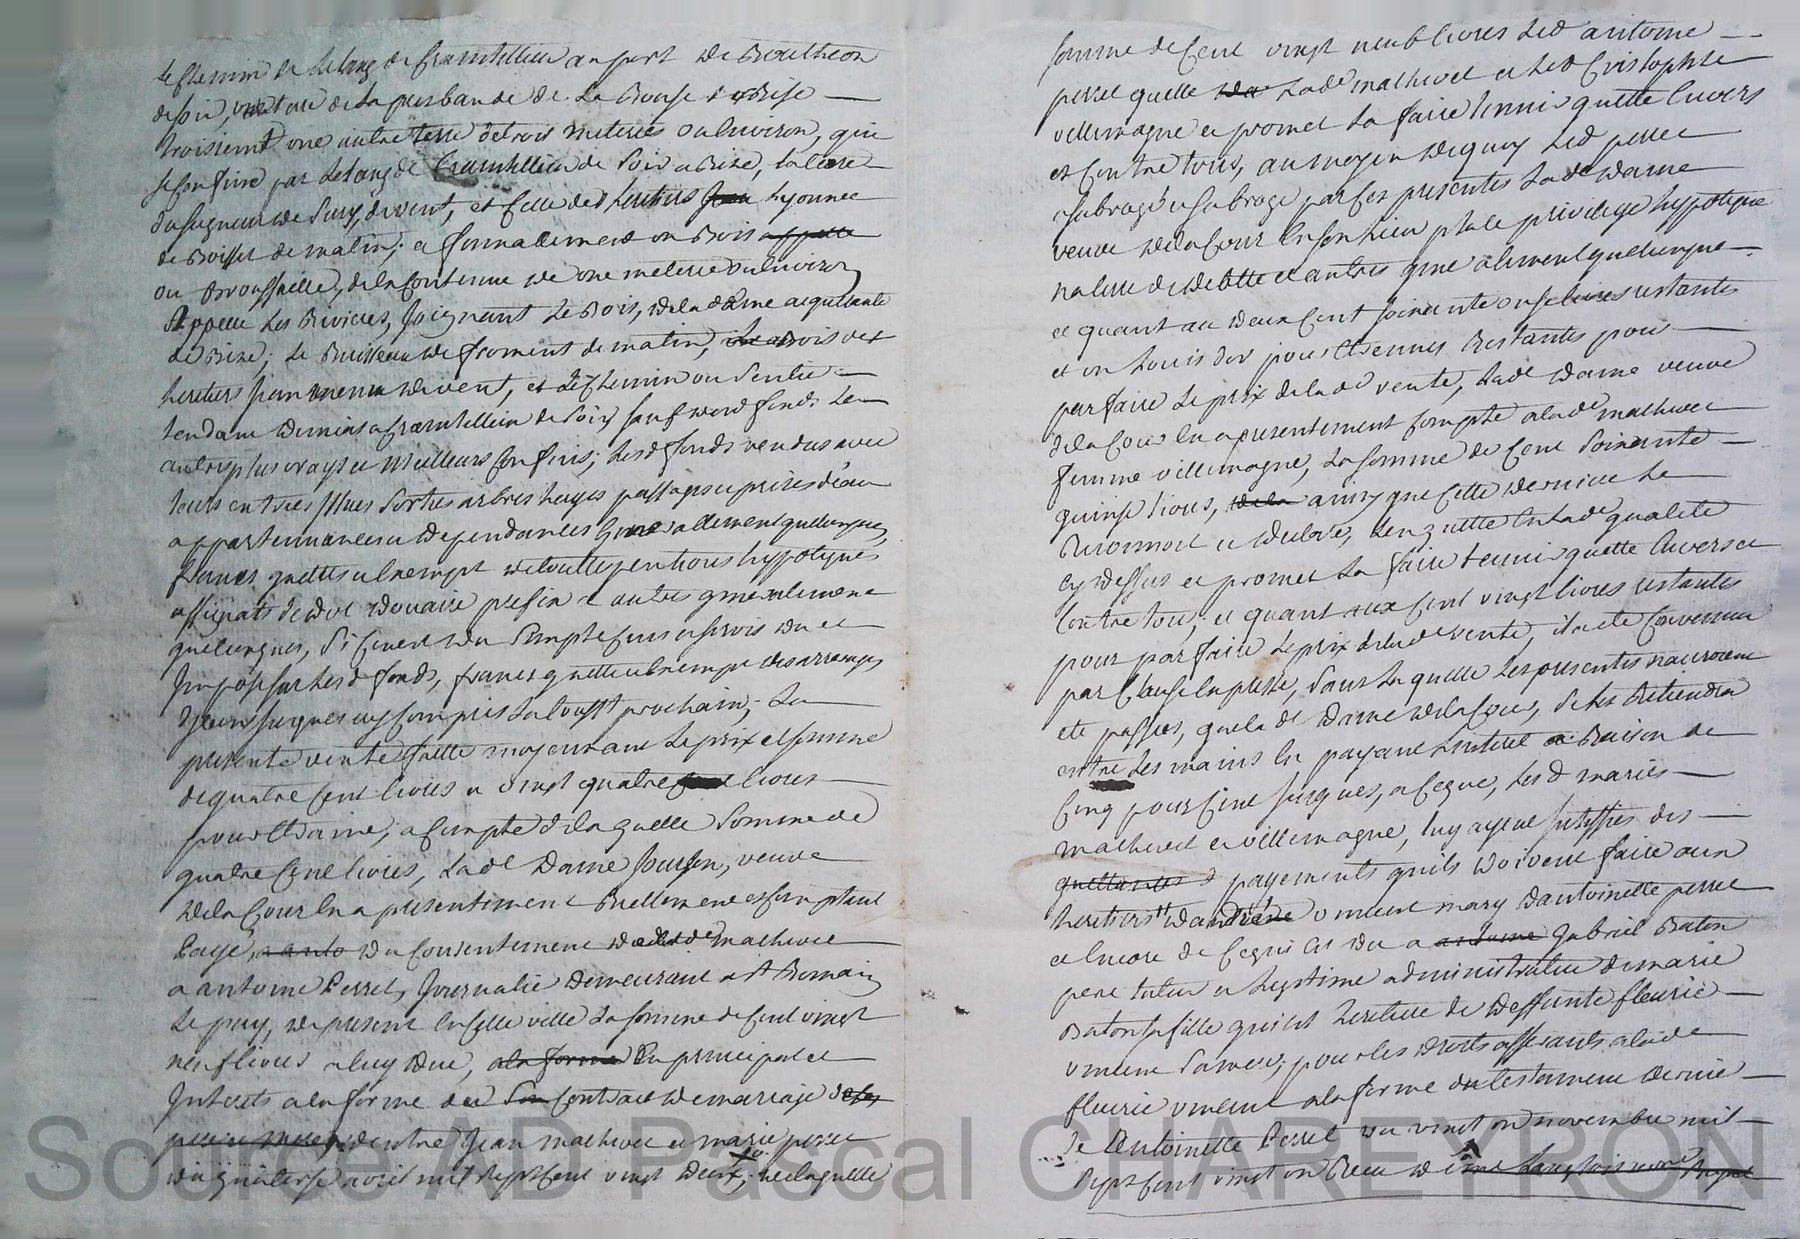 le chemin de l'etang de Craintillieu au port de Boutheon
de soir, une terre de la presbande de la de Bise
troisiemt une autre terre de trois meterées ou lenviron, qui
se confine par letang de Craintillieu de soir a Bize, la terre
du seigneur de Sury, de vent, et celle des heritiers Lyonnee
de Boisset de matin; et finnallement un Bois appelle
ou Broussaille, de la contenue de une meterée ou lenviron
Appelle Les Rivieres, Joignant Le Bois, de la dame acquereante
de Bize; le Ruisseau de froment de matin, Le Bois des
heritiers Jean de vent, et Le chemin ou sentier
tendant a Craintillieu de soir, sauf desd fonds Leurs
autres plus vrays et meilleurs confins; lesd fonds vendus avec
leurs entrées issues sorties arbres hayes passages prises d'eau
appartenances et dependances generallement quelconques
francs quittes et exempt de touttes pentions hyppoteques
assignats de dot douaire prefix et autres generalement
quelconques, Si cenest du simple cens et servis du et
Imposé sur lesd fonds, francs quitte et exempt des arrerages
d'yceux jusques uy compris la tousst prochain; La
presente vente faitte moyennant Le prix et somme
de quatre cent livres et vingt quatre livres
pour Etraine; a compte de laquelle somme de
quatre cent livres, lade Dame veuve
Delacour en a presentement Reellement et comptant
Payé, du consentement de lade mathevet
a antoine Perret, Journalier demeurant a st Romain
Le puy, de present en cette ville la somme de cent vingt
neuf livres a luy due, a la forme En principal et
Interets a la forme du son contract de mariage
pere et mere, d'entre Jean mathevet et marie perret
du quatorze avril mil sept cent vingt deux, de laquelle
somme de cent vingt neuf livres led antoine
perret quitte lade mathevet et led Cristophle
villemagne et promet la faire tenir quitte Envers
et contre tous, au moyen de quoy led perret
a subrogé et subroge par ces presentes lade dame
veuve delacour en son lieu place privilege hyppoteque
nature de dette et autres generalement quelconques
et quant au deux cent soixante onze livres restantes
et un Louis d'or pour Etrennes Restantes pour
parfaire Le prix de lade vente, lade dame veuve
delacour en a presentement compté a lade mathevet
femme villemagne, la somme de cent soixante
quinze livres, ainsy que cette derniere Le
Reconnoit et declare, len quitte en lade qualité
cy dessus et promet la faire tenir quitte Envers et
Contre tous, et quant aux cent vingt livres restantes
pour parfaire le prix de lade vente, il a été Convenu
par Clause expresse, sans laquelle les presentes nauroient
eté passées, que lade dame delacour, se les Retiendra
entre les mains en payant linteret a Raison de
Cinq pour Cent jusques, a ce que, lesd mariés
mathevet et villemagne, luy ayent justiffiés des
quittances d payements quils doivent faire aux
heritiers d'andré omeent mary d'antoinette perret
et Encore de ce qui est du a antoine Gabriel Baton
pere tuteur et legitime administrateur de marie
Baton sa fille qui est heritiere de deffunte fleurie
sa mere, pour les droits afferants a lade
fleurie a la forme du testament dernier
de Antoinette Perret du vingt un novembre mil
Sept cent vingt un Recu